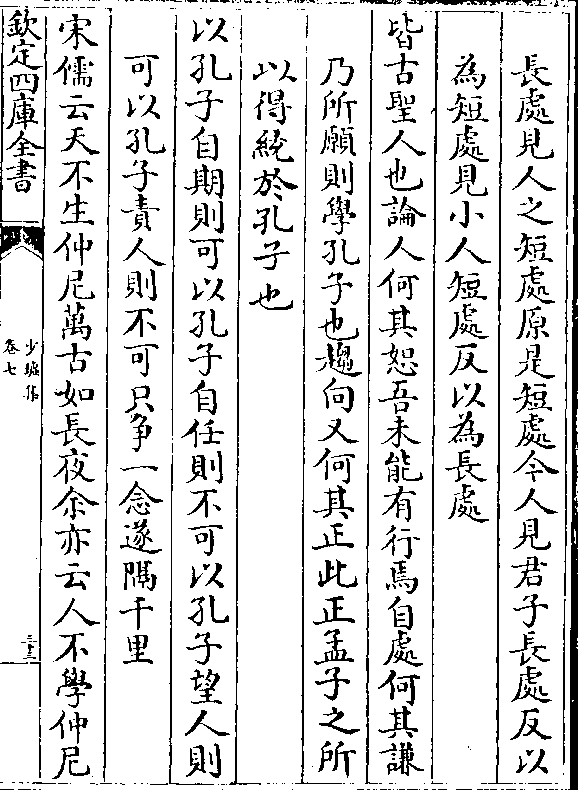 長處見人之短處原是短處今人見君子長處反以
為短處見小人短處反以為長處
皆古聖人也論人何其恕吾未能有行焉自處何其謙
乃所願則學孔子也趨向又何其正此正孟子之所
以得統於孔子也
以孔子自期則可以孔子自任則不可以孔子望人則
可以孔子責人則不可只争一念遂隔千里
宋儒云天不生仲尼萬古如長夜余亦云人不學仲尼
欽定四庫全書
少墟集
卷七
三十三